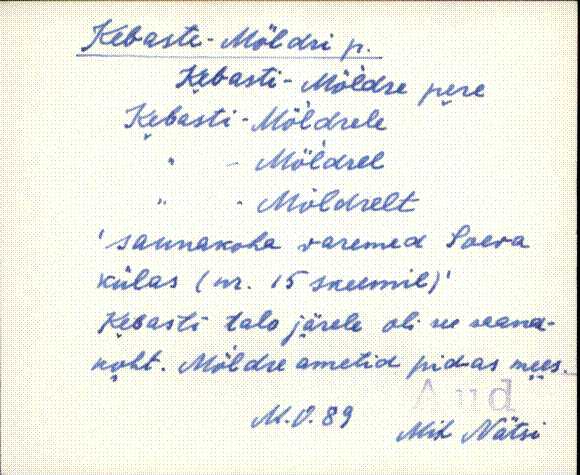 Kebaste-Möldri p.
Kebasti-Möldre pere
Kebasti-Möldrele
" - Möldrel
" - Möldrelt
'saunakoha varemed Soeva
külas (nr. 15 skeemil)'
Kebasti talo järele oli see
koht. Möldre ametid pidas mees.
Aud
M.V. 89
Mih Nätsi